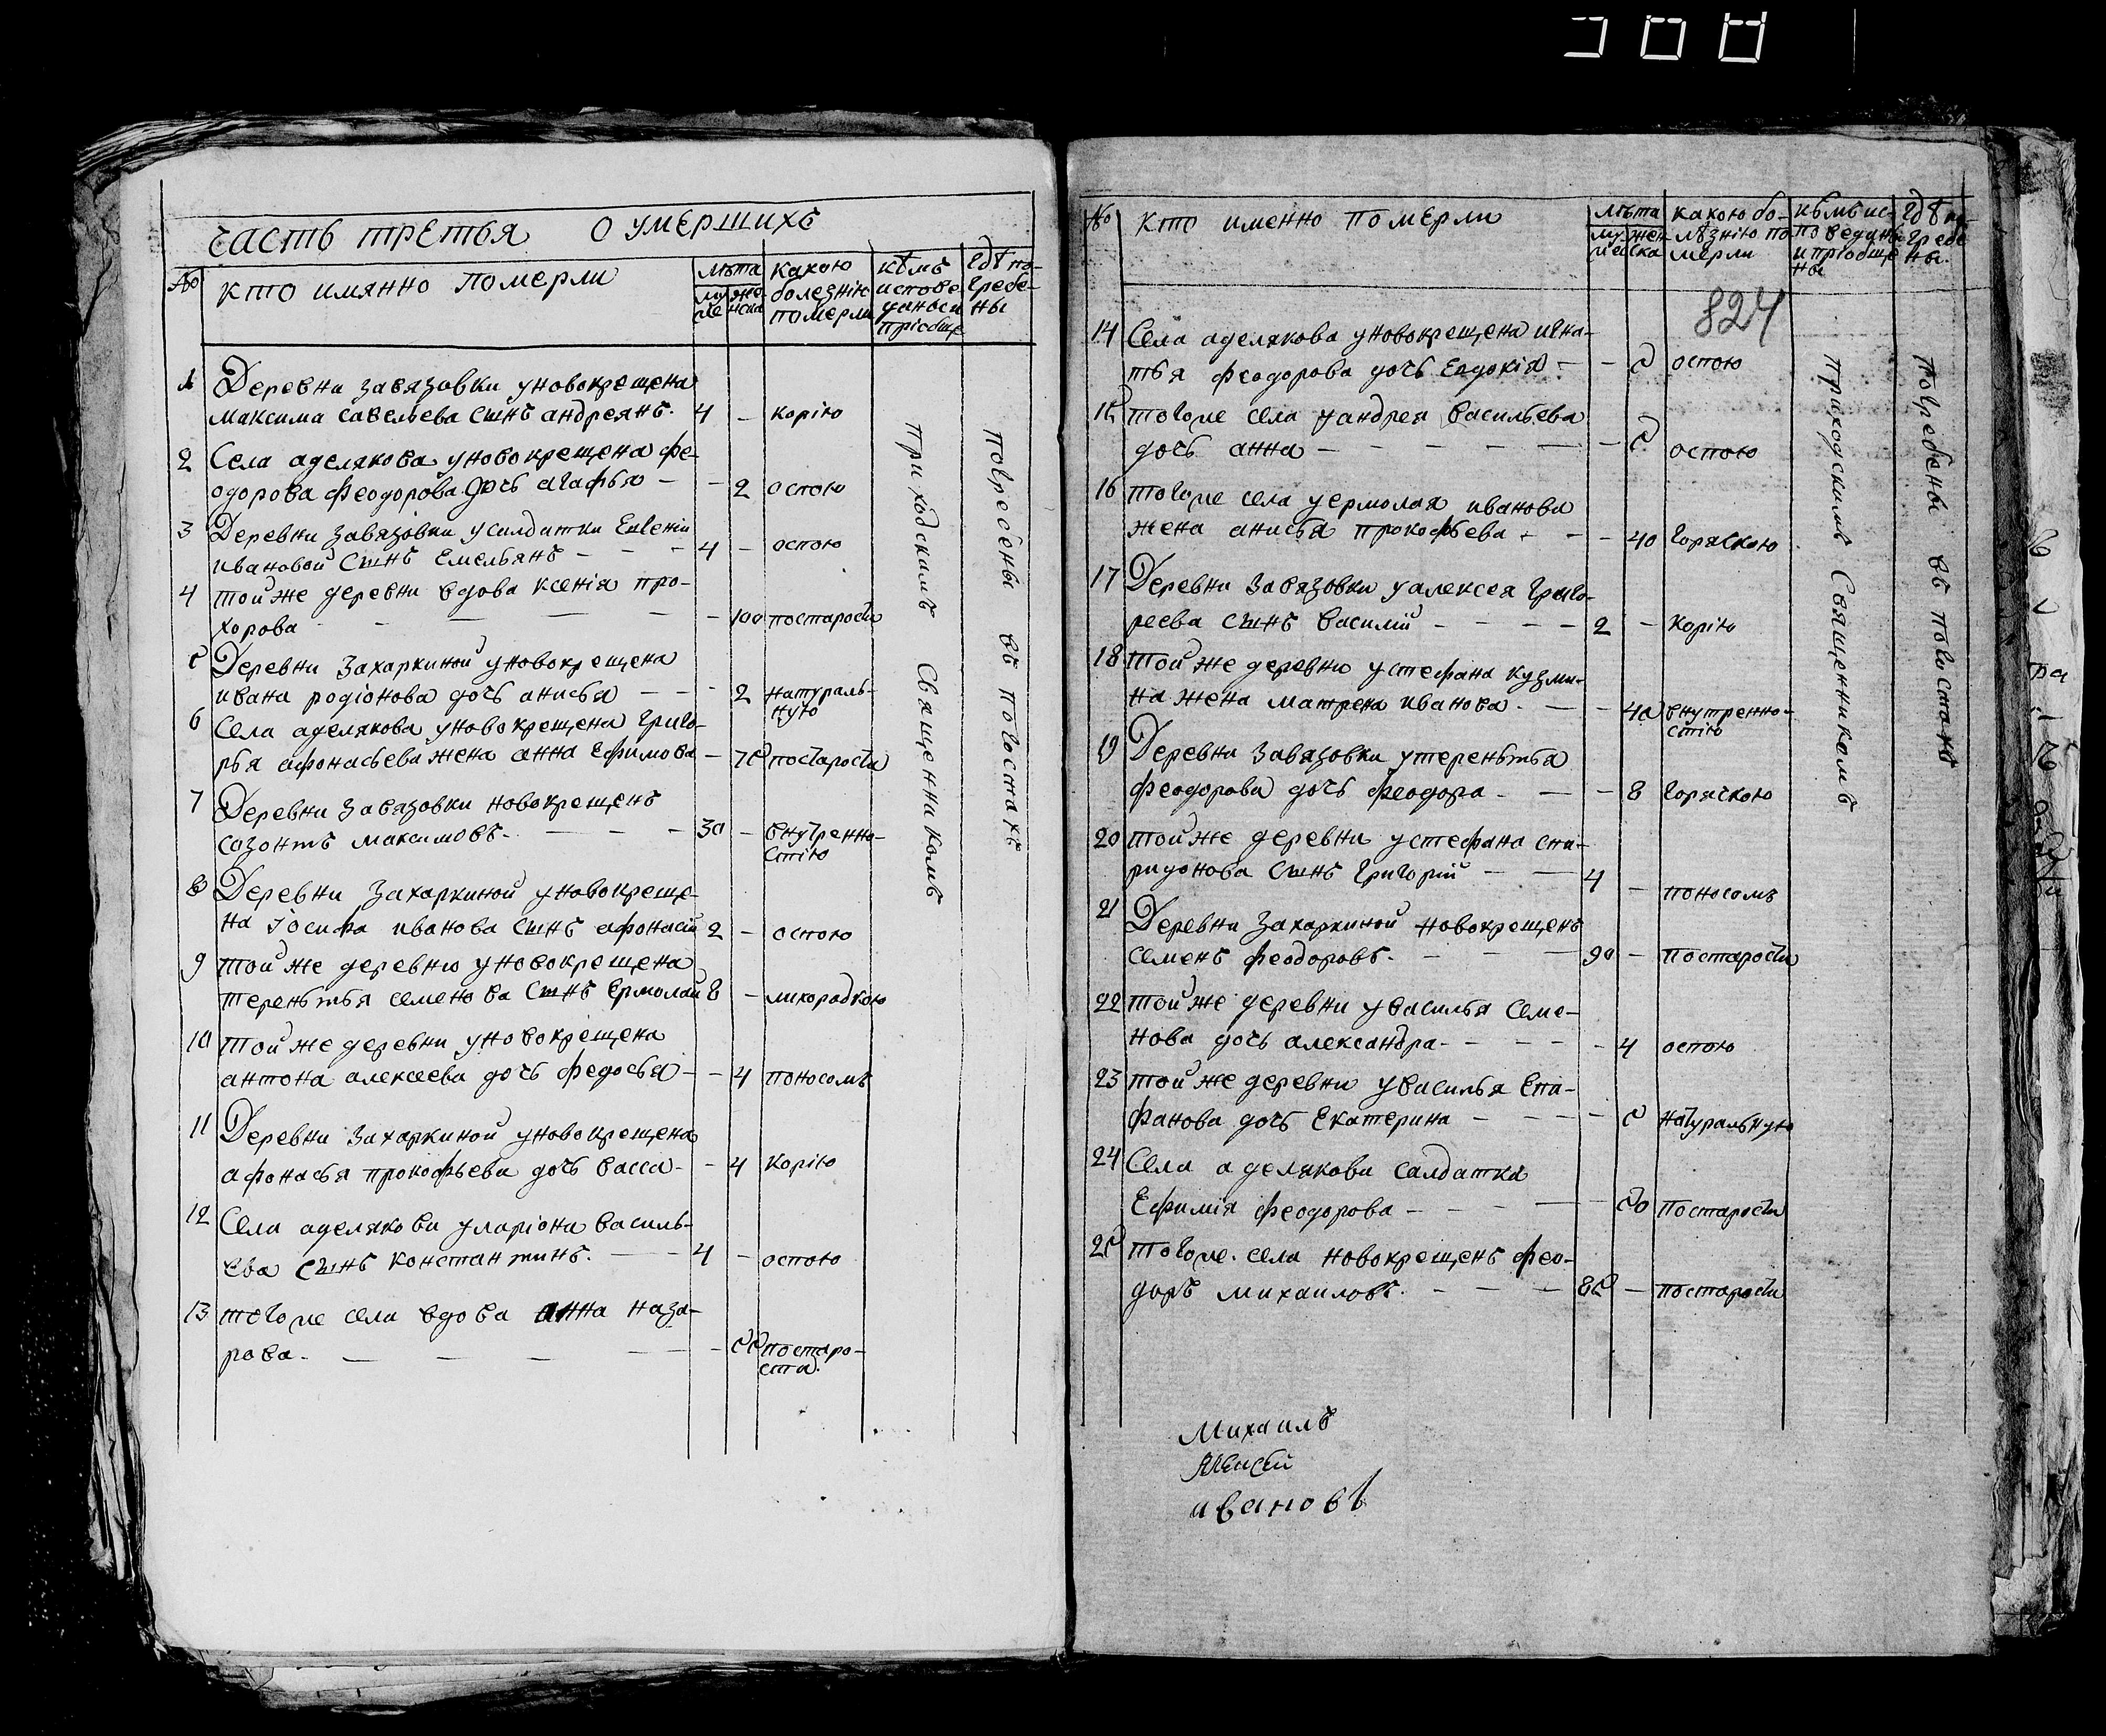 Часть третья о умершихъ
№ кто имянно померли
лѣта
муже женска
какою болезнію померли
кѣмъ исповеданы и пріобще
гдѣ погребены
1 Деревни завязовки у новокрещена
максима савельева сынъ андреянъ. 4 – корію
2 Села аделякова у новокрещена фе-
одорова феодорова дочь агафья – – 2 оспою
3 Деревни завязовки у салдатки Евгеніи
ивановой сынъ Емельянъ – – – 4 – оспою
4 той же деревни вдова ксенія про-
хорова – – – – – 100 постарости
5 Деревни захаркиной у новокрещена
ивана родіонова дочь анисья – – – 2 натураль-
ную
6 Села аделякова у новокрещена григо-
рья афонасьева жена анна Ефимова – 75 постарости
7 Деревни завязовки новокрещенъ
созонтъ максимовъ. – – – 30 – внутренно-
стію
8 Деревни захаркиной у новокреще-
на іосифа иванова сынъ афонасій 2 – оспою
9 той же деревни у новокрещена
терентья семенова сынъ Ермолай 8 – лихорадкою
10 той же деревни у новокрещена
антона алексеева дочь федосья – – 4 поносомъ
11 Деревни захаркиной у новокрещена
афонасья прокофьева дочь васса – – 4 корію
12 Села аделякова у ларіона василь-
ева сынъ константинъ. – – 4 – оспою
13 тогоже села вдова анна наза-
рова. – – – – – – 55 постаро-
сти.
приходскимъ Священникомъ
погребены въ погостахъ
№ кто именно померли
лѣта
муже женска
какою болѣзнію померли
кѣмъ исповеданы и пріобщены
гдѣ погребены.
824
14 Села аделякова у новокрещена игна-
тья феодорова дочь Евдокія – – 5 оспою
15 тогоже села у андрея васильева
дочь анна – – – – – – 5 оспою
16 тогоже села у ермолая иванова
жена анисья прокофьева – – – 40 горячкою
17 Деревни завязовки у алексея григо-
реева сынъ василій – – – – 2 – корію
18 той же деревни у стефана кузми-
на жена матрена иванова. – – 40 внутренно-
стію
19 Деревни завязовки у терентья
феодорова дочь феодора – – – 8 горячкою
20 той же деревни у стефана спи-
ридонова сынъ григорій – – 4 – поносомъ
21 Деревни захаркиной новокрещенъ
семенъ феодоровъ. – – – 90 – постарости
22 той же деревни у василья семе-
нова дочь александра – – – – – 4 оспою
23 той же деревни у василья епи-
фанова дочь Екатерина – – – – 5 натуральную
24 Села аделякова салдатка
Ефимія феодорова – – – – – 50 постарости
25 тогоже села новокрещенъ фео-
доръ михаиловъ. – – – 85 – постарости
приходскимъ Священникомъ
погребены въ погостахъ
Михаилъ
Алексей
ивановъ